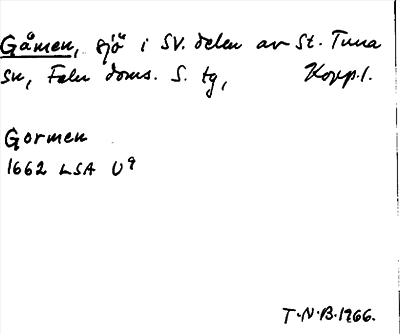 Gåmen, sjö i SV. delen av St. Tuna
sn, Falu doms. S. tg, Kopp.l.
Gormen
1662 LSA U9
T.N.B.1966.